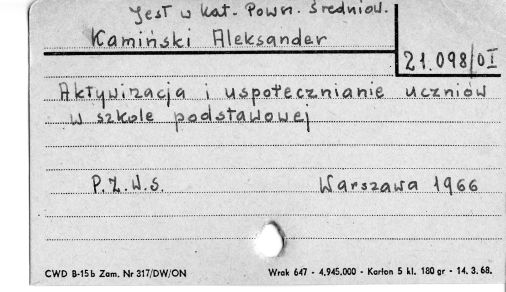 Jest w kat. Pown. średniow.
Kamiński Aleksander
21.098/OI
Aktywizacja i uspołecznianie uczniów
w szkole podstawowej
P.Z.W.S. Warszawa 1966
CWD B-15b Zam. Nr 317/DW/ON Wrak 647 - 4,945.000 - Karton 5 kl. 180 gr - 14. 3. 68.